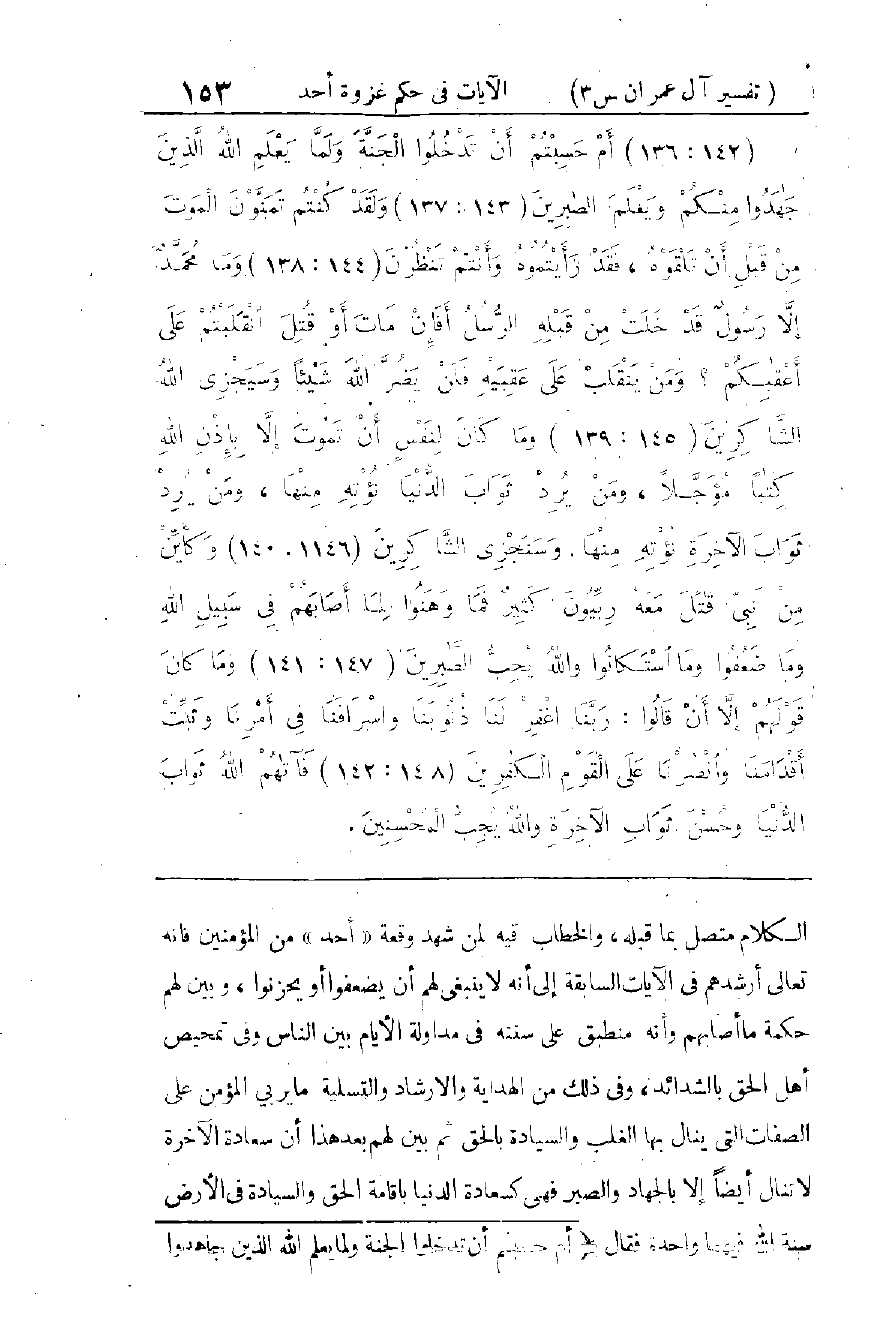 ( تفسير آل عمران س ٣ ) الآيات فى حكم غزوة أحد ١٥٣
( ١٤٢ : ١٣٦ ) أَمْ حَسِبْتُمْ أَنْ تَدْخُلُوا الْجَنَّةَ وَلَمَّا يَعْلَمِ اللهُ الَّذِينَ
جَهَدُوا مِنْكُمْ وَيَعْلَمَ الصَّبِرِينَ ( ١٤٣ : ١٣٧ ) وَلَقَدْ كُنْتُم تَمَنَّوْنَ الْمَوتَ
مِنْ قَبْلِ أَنْ تَلْقَوْهُ ، فَقَدْ رَأَيْتُمُوهُ وَأَنْتُمْ تَنْظُرُنَ ( ١٤٤ : ١٣٨ ) وَمَا مُحَمَّدٌ
إِلَّا رَسُولٌ قَدْ خَلَتْ مِنْ قَبْلِهِ الرُّسُلُ أَفَإِنْ مَاتَ أَوْ قُتِلَ انْقَلَبْتُمْ عَلَى
أَعْقَبِكُمْ ؟ وَمَنْ يَنْقَلِبْ عَلَى عَقِبَيْهِ فَلَنْ يَضُرَّ اللهَ شَيْئاً وَسَيَجْزِى اللهُ
الشَّاكِرِينَ ( ١٤٥ : ١٣٩ ) وَمَا كَانَ لِنَفْسٍ أَنْ تَمُوتَ إِلَّا بِإِذْنِ اللهِ
كِتَباً مُؤَجَّلاً ، وَمَنْ يُرِدْ ثَوَابَ الدُّنْيَا نُؤْتِهِ مِنْهَا ، وَمَنْ يُرِدْ
ثَوَابَ الآخِرَةِ نُؤْتِهِ مِنْهَا . وَسَنَجْزِى الشَّاكِرِينَ ( ١١٤٦ . ١٤٠ ) وَكَأَيِّنْ
مِنْ نَبِيٍّ قَتَلَ مَعَهُ رِبِّيُّونَ كَثِيرٌ فَمَا وَهَنُوا لِمَا أَصَابَهُمْ فِي سَبِيلِ اللهِ
وَمَا ضَعُفُوا وَمَا اسْتَكَانُوا وَاللهُ يُحِبُّ الصَّبِرِينَ ( ١٤٧ : ١٤١ ) وَمَا كَانَ
قَوْلَهُمْ إِلَّا أَنْ قَالُوا : رَبَّنَا اغْفِرْ لَنَا ذُنُوبَنَا وَاسْرَافَنَا فِي أَمْرِنَا وَثَبِّتْ
أَقْدَامَنَا وَانْصُرْنَا عَلَى الْقَوْمِ الْكَفِرِينَ ( ١٤٨ : ١٤٢ ) فَآتَهُمُ اللهُ ثَوَابَ
الدُّنْيَا وَحُسْنَ ثَوَابِ الآخِرَةِ وَاللهُ يُحِبُّ الْمُحْسِنِينَ .
الكلام متصل بما قبله ، والخطاب فيه لمن شهد وقعة « أحد » من المؤمنين فانه
تعالى أرشدهم فى الآيات السابقة إلى أنه لا ينبغى لهم أن يضعفوا أو يحزنوا ، وبين لهم
حكمة ما أصابهم وأنه منطبق على سننه فى مداولة الأيام بين الناس وفى تمحيص
أهل الحق بالشدائد ، وفى ذلك من الهداية والارشاد والتسلية ما يربي المؤمن على
الصفات التى ينال بها الغلب والسيادة بالحق ثم بين لهم بعد هذا أن سعادة الآخرة
لا تنال أيضاً إلا بالجهاد والصبر فهى كسعادة الدنيا باقامة الحق والسيادة فى الأرض
سنة الله فيهما واحدة فقال ﴿ أم حسبتم أن تدخلوا الجنة ولما يعلم الله الذين جاهدوا